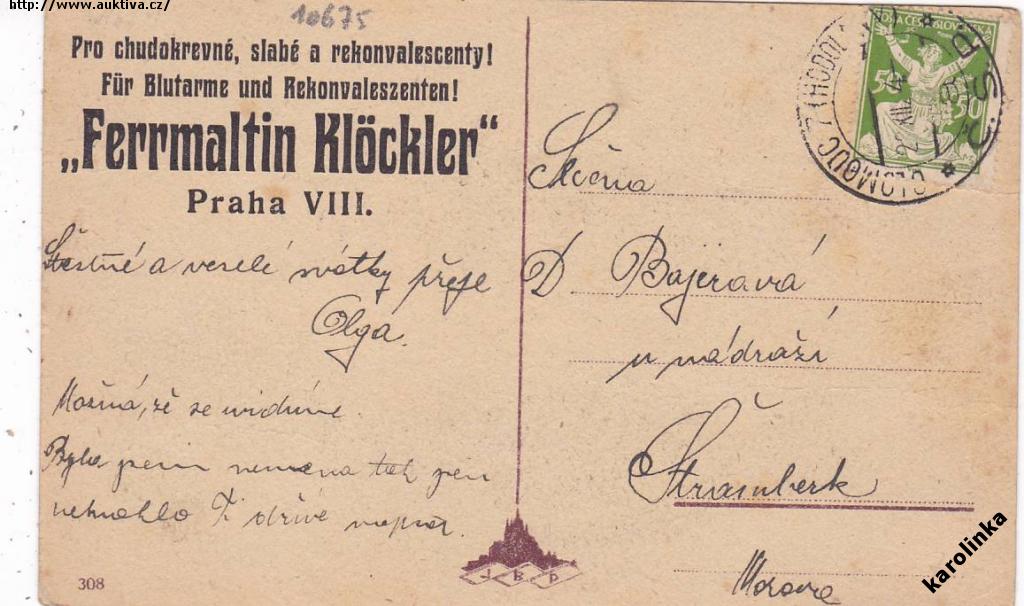 http://www.auktiva.cz/
10675
Pro chudokrevné, slabé a rekonvalescenty!
Für Blutarme und Rekonvaleszenten!
„Ferrmaltin Klöckler“
Praha VIII.
Šťastné a veselé svátky přeje
Olga.
Možná, že se uvidíme.
Byla jsem nemocna tak jsem
nemohlo Ti dříve napsat.
308
POŠTA ČESKOSLOVENSKÁ
50 50
OLOMOUC 7 (HODOL
Č.S.R.
Slečna
D Bajerová
u nádraží
Štramberk
Morava
J B P
karolinka